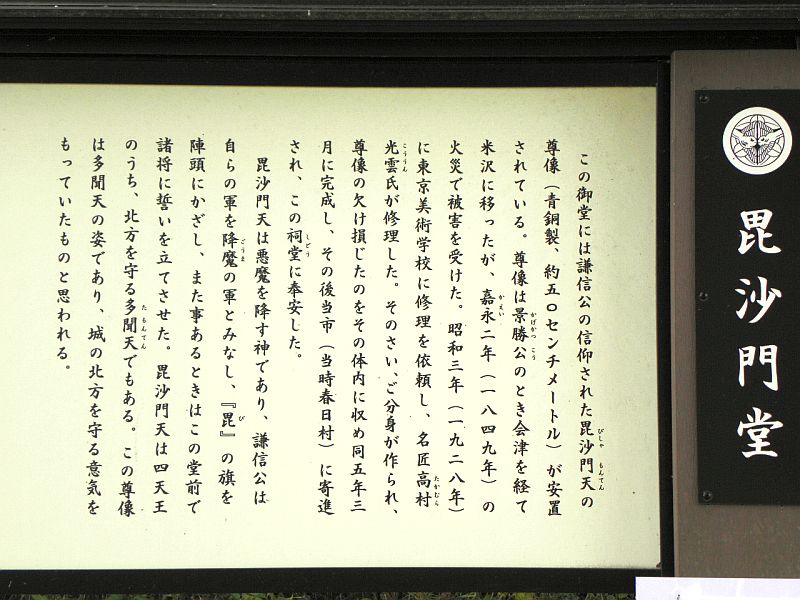 毘沙門堂
この御堂には謙信公の信仰された毘沙門天の
尊像（青銅製、約五〇センチメートル）が安置
されている。尊像は景勝公のとき会津を経て
米沢に移ったが、嘉永二年（一八四九年）の
火災で被害を受けた。昭和三年（一九二八年）
に東京美術学校に修理を依頼し、名匠高村
光雲氏が修理した。そのさい、ご分身が作られ、
尊像の欠け損じたのをその体内に収め同五年三
月に完成し、その後当市（当時春日村）に寄進
され、この祠堂に奉安した。
毘沙門天は悪魔を降す神であり、謙信公は
自らの軍を降魔の軍とみなし、『毘』の旗を
陣頭にかざし、また事あるときはこの堂前で
諸将に誓いを立てさせた。毘沙門天は四天王
のうち、北方を守る多聞天でもある。この尊像
は多聞天の姿であり、城の北方を守る意気を
もっていたものと思われる。